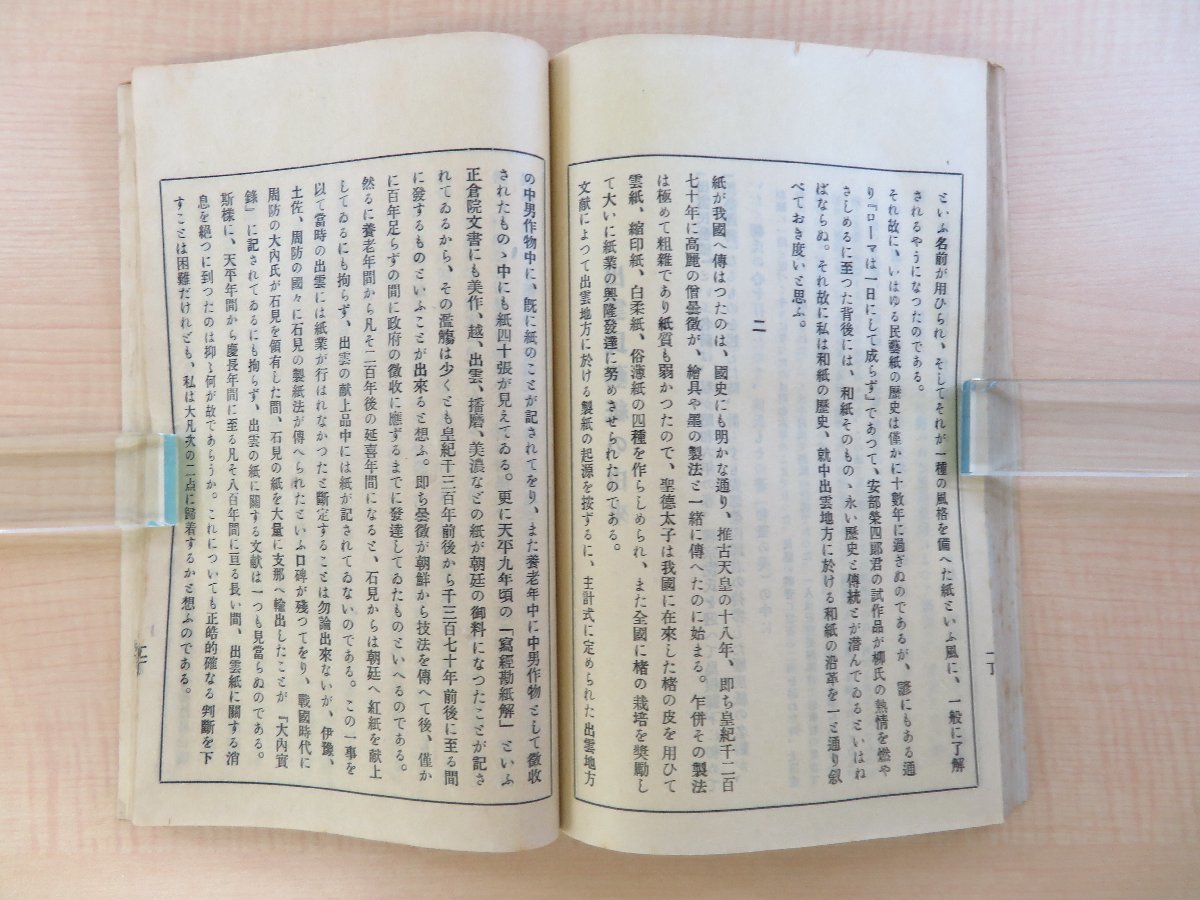 といふ名前が用ひられ、そしてそれが一種の風格を備へた紙といふ風に、一般に了解
されるやうになつたのである。
それ故に、いはゆる民藝紙の歴史は僅かに十數年に過ぎぬのであるが、諺にもある通
り『ローマは一日にして成らず』であつて、安部榮四郎君の試作品が柳氏の熱情を燃や
さしめるに至つた背後には、和紙そのものゝ永い歴史と傳統とが潜んでゐるといはね
ばならぬ。それ故に私は和紙の歴史、就中出雲地方に於ける和紙の沿革を一と通り叙
べておき度いと思ふ。
二
紙が我國へ傳はつたのは、國史にも明かな通り、推古天皇の十八年、即ち皇紀千二百
七十年に高麗の僧曇徴が、繪具や墨の製法と一緒に傳へたのに始まる。乍併その製法
は極めて粗雜であり紙質も弱かつたので、聖德太子は我國に在來した楮の皮を用ひて
雲紙、縮印紙、白柔紙、俗薄紙の四種を作らしめられ、また全國に楮の栽培を奬勵し
て大いに紙業の興隆發達に努めさせられたのである。
文献によつて出雲地方に於ける製紙の起源を按ずるに、主計式に定められた出雲地方
の中男作物中に、既に紙のことが記されてをり、また養老年中に中男作物として徴收
されたものゝ中にも紙四十張が見えてゐる。更に天平九年頃の「寫經勘紙解」といふ
正倉院文書にも美作、越、出雲、播磨、美濃などの紙が朝廷の御料になつたことが記さ
れてゐるから、その濫觴は少くとも皇紀千三百年前後から千三百七十年前後に至る間
に發するものといふことが出來ると想ふ。即ち曇徴が朝鮮から技法を傳へて後、僅か
に百年足らずの間に政府の徴收に應ずるまでに發達してゐたものといへるのである。
然るに養老年間から凡そ二百年後の延喜年間になると、石見からは朝廷へ紅紙を献上
してゐるにも拘らず、出雲の献上品中には紙が記されてゐないのである。この一事を
以て當時の出雲には紙業が行はれなかつたと斷定することは勿論出來ないが、伊豫、
土佐、周防の國々に石見の製紙法が傳へられたといふ口碑が殘つてをり、戰國時代に
周防の大内氏が石見を領有した間、石見の紙を大量に支那へ輸出したことが『大内實
錄』に記されてゐるにも拘らず、出雲の紙に關する文献は一つも見當らぬのである。
斯樣に、天平年間から慶長年間に至る凡そ八百年間に亘る長い間、出雲紙に關する消
息を絶つに到つたのは抑〻何が故であらうか。これについても正皓的確なる判斷を下
すことは困難だけれども、私は大凡次の二点に歸着するかと想ふのである。